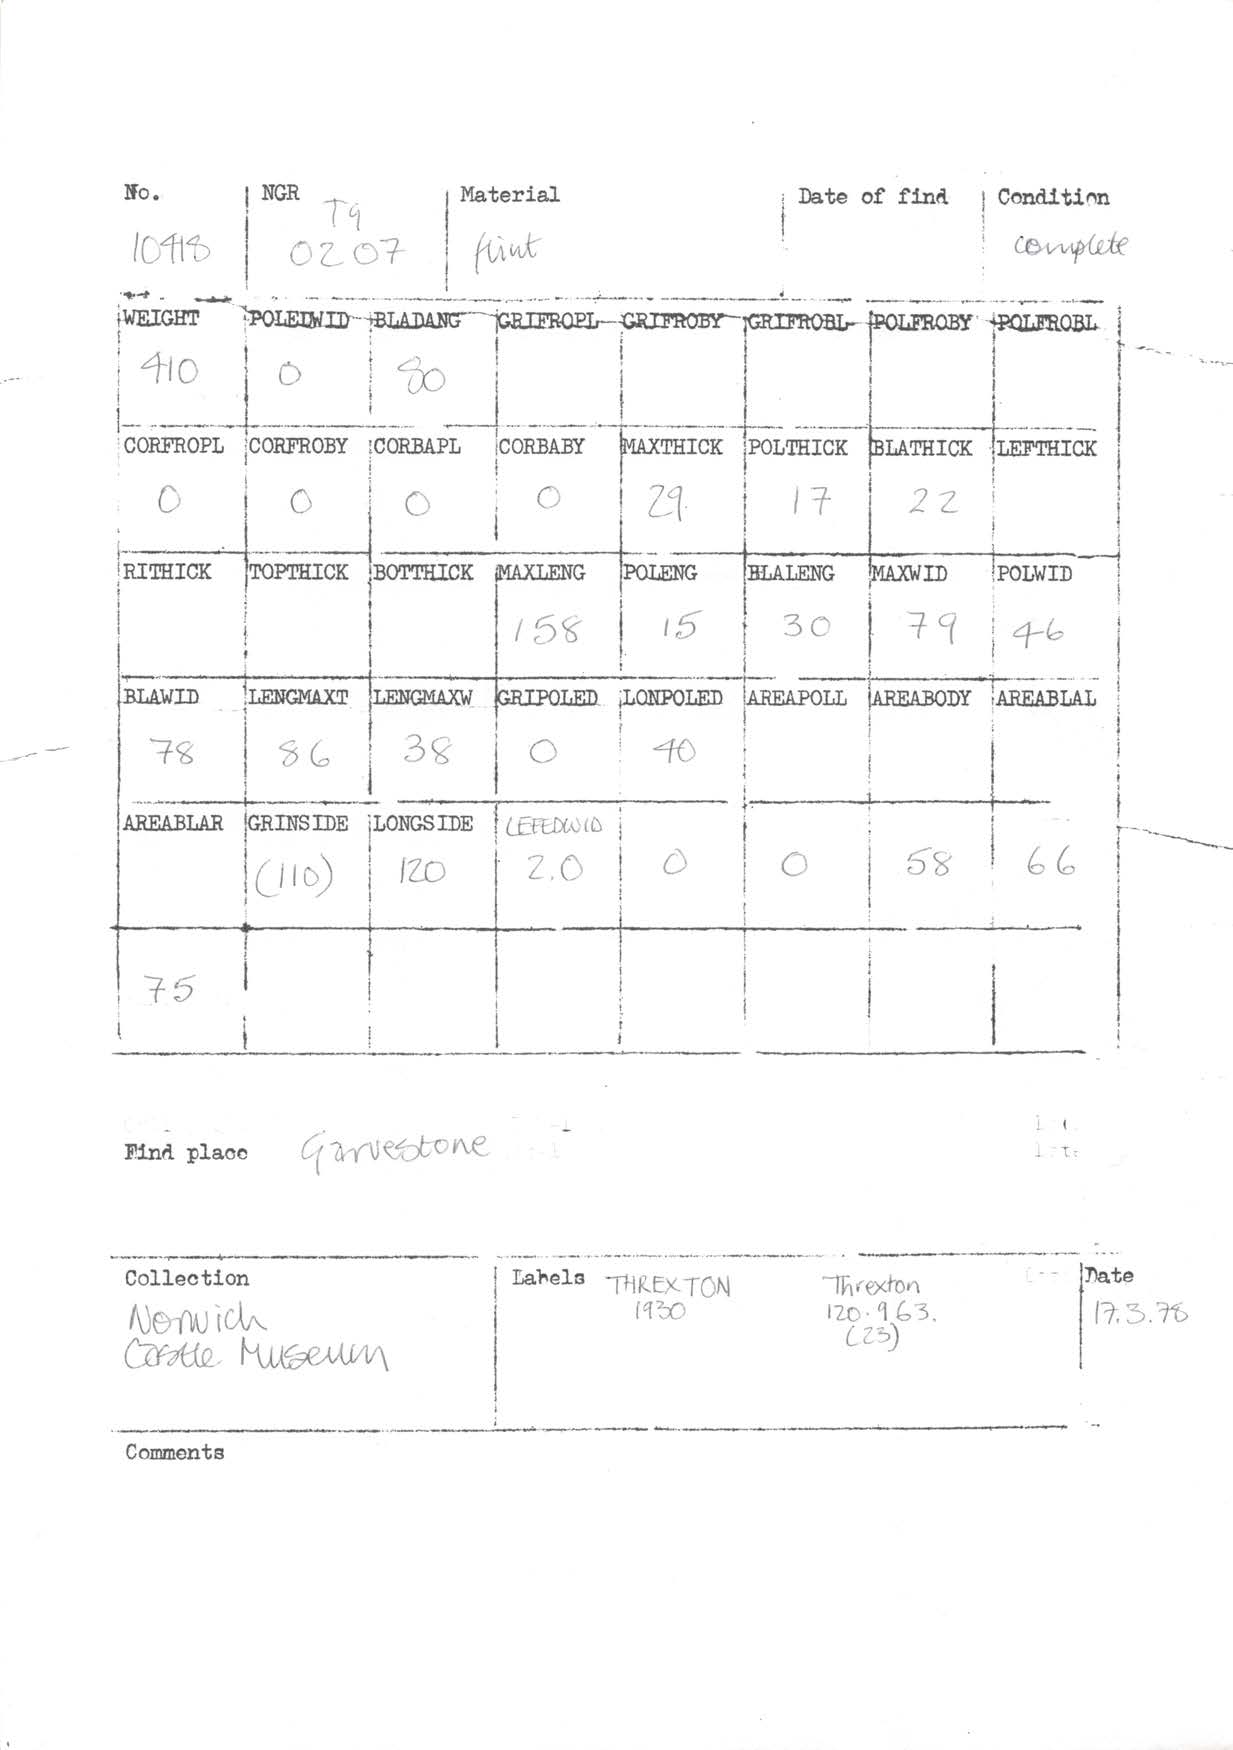 No. NGR Material Date of find Condition
TG
10418 0207 flint complete
WEIGHT POLEDWID BLADANG GRIFROPL GRIFROBY GRIFROBL POLFROBY POLFROBL
410 0 80
CORFROPL CORFROBY CORBAPL CORBABY MAXTHICK POLTHICK BLATHICK LEFTHICK
0 0 0 0 29 17 22
RITHICK TOPTHICK BOTTHICK MAXLENG POLENG BLALENG MAXWID POLWID
158 15 30 79 46
BLAWID LENGMAXT LENGMAXW GRIPOLED LONPOLED AREAPOLL AREABODY AREABLAL
78 86 38 0 40
AREABLAR GRINSIDE LONGSIDE LEFEDWID
(110) 120 2.0 0 0 58 66
75
Find place Garvestone
Collection Labels THREXTON Threxton Date
Norwich 1930 120.963. 17.3.78
Castle Museum (23)
Comments